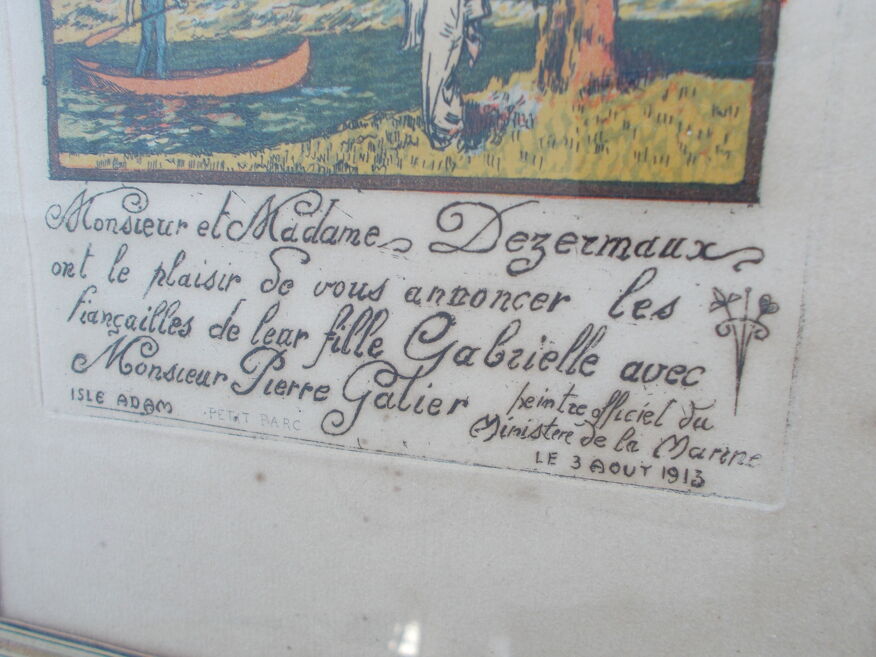 Monsieur et Madame Dezermaux
ont le plaisir de vous annoncer les
fiançailles de leur fille Gabrielle avec
Monsieur Pierre Galier peintre officiel du
Ministere de la Marine
ISLE ADAM PETIT PARC
LE 3 AOUT 1913